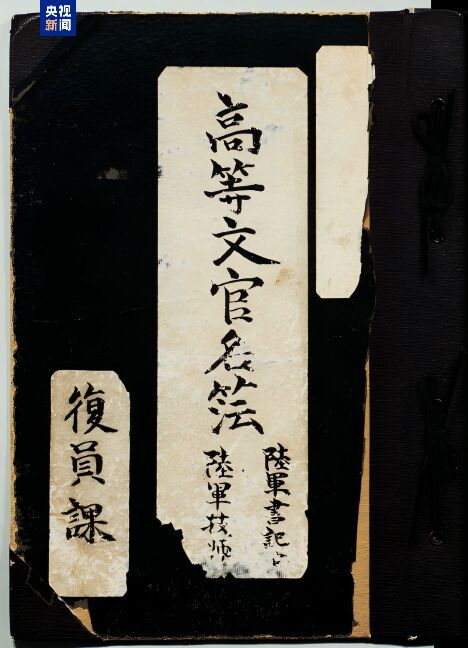 央视
新闻
高等文官名簿
陸軍書記官
陸軍技師
復員課